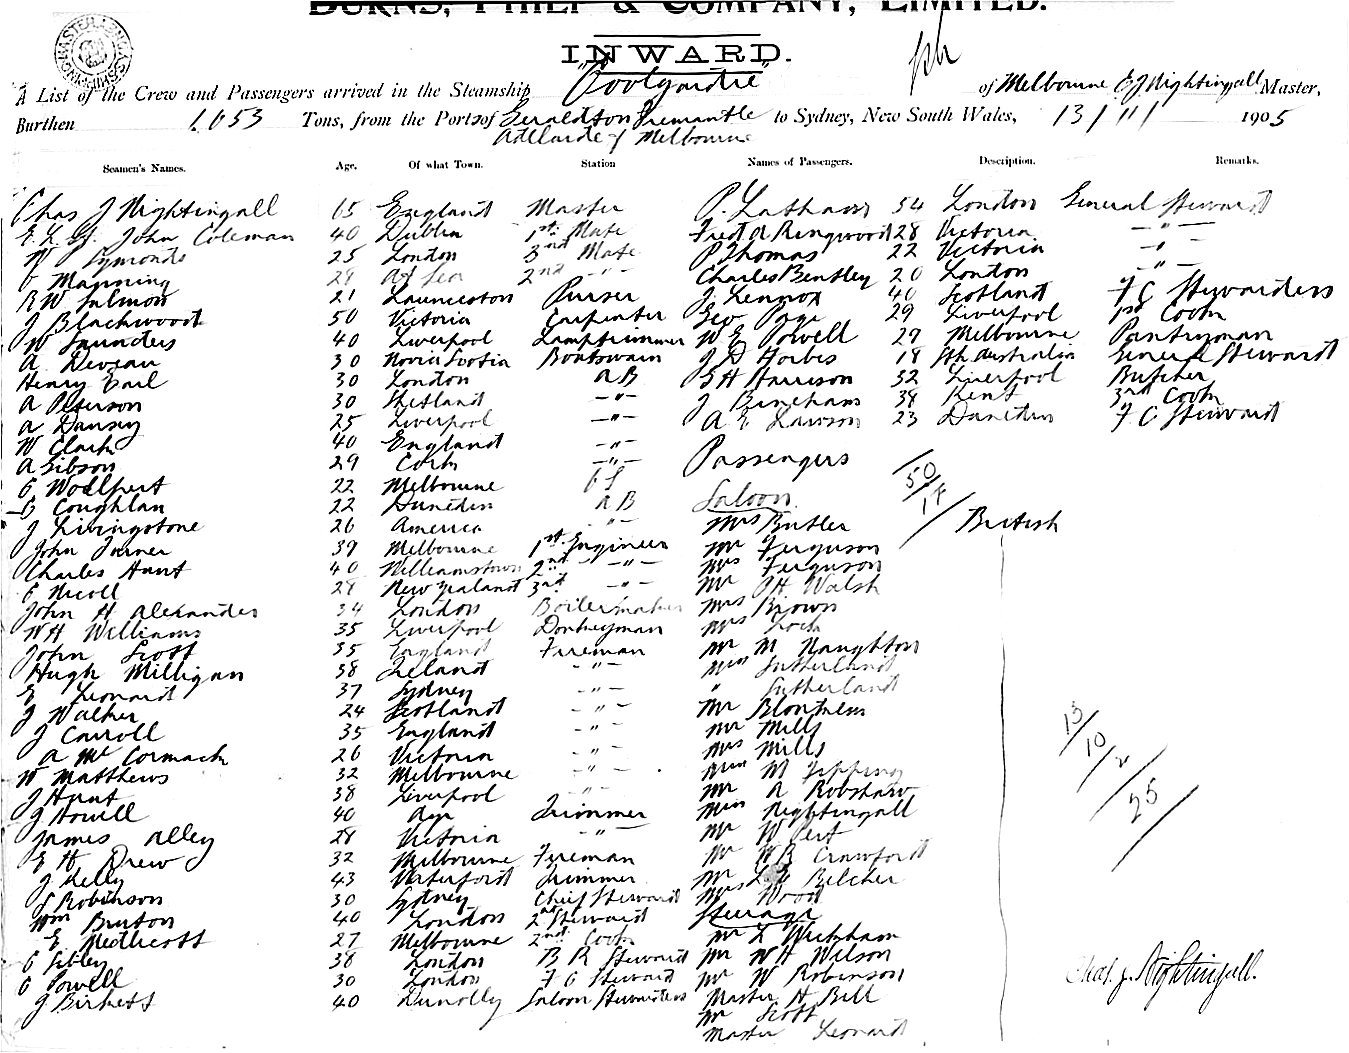 BURNS, PHILP & COMPANY, LIMITED.
INWARD.
A List of the Crew and Passengers arrived in the Steamship "Coolgardie" of Melbourne C J Nightingall Master,
Burthen 1053 Tons, from the Ports of Geraldton Fremantle to Sydney, New South Wales, 13/11 1905
Adelaide & Melbourne
Seamen's Names. Age. Of what Town. Station Names of Passengers. Description. Remarks.
Chas J Nightingall 65 England Master P. Latham 54 London General Steward
John Coleman 40 Dublin 1st Mate Fred A Ringwood 28 Victoria — " —
W Symonds 25 London 3rd Mate P Thomas 22 Victoria — " —
Manning 29 At Sea 2nd - " - Charles Bentley 20 London — " —
R W Salmon 21 Launceston Purser J. Lennox 40 Scotland F C Stewardess
J Blackwood 50 Victoria Carpenter Geo Page 29 Liverpool 1st Cook
W Saunders 40 Liverpool Lamptrimmer W E Powell 27 Melbourne Pantryman
A Deveau 30 Novia Scotia Boatswain J D Forbes 18 Sth Australia General Steward
Henry Earl 30 London A B G H Harrison 32 Liverpool Butcher
A Peterson 30 Shetland — " — J Bincham 38 Kent 3rd Cook
A Dansey 25 Liverpool — " — A E Lawson 23 Dunedin F C Steward
W Clark 40 England — " —
A Gibson 29 Cork — " — Passengers
Woolpert 22 Melbourne 50/18
Coughlan 22 Dunedin A B Saloon British
J Livingstone 26 America " Mrs Butler
John Turner 39 Melbourne 1st Engineer Mr Ferguson
Charles Hunt 40 Williamstown 2nd - " - Mrs Ferguson
Nicoll 28 New Zealand 3rd - " - Mr Walsh
John H Alexander 34 London Boilermaker Mrs Brown
W H Williams 35 Liverpool Donkeyman Mrs Lock
John Scott 35 England Fireman Mr M Naughton
Hugh Milligan 38 Ireland - " - Miss Sutherland
E Leonard 37 Sydney - " - " Sutherland
J Walker 24 Scotland - " - Mr
J Carroll 35 England - " - Mr Mills
A McCormack 26 Victoria - " - Mrs Mills
W Matthews 32 Melbourne - " - Miss M Tipping
J Hunt 38 Liverpool - " - Mr A Robshaw
J Howell 40 Ayr Trimmer Miss Nightingall
James Alley 28 Victoria - " - Mr W Pert
E H Drew 32 Melbourne Fireman Mr W R Crawford
J Kelly 43 Waterford Trimmer Mr Belcher
Robinson 30 Sydney Chief Steward Mrs Wood
Wm Burton 40 London 2nd Steward Steerage
E Medlicott 27 Melbourne 2nd Cook Mr L Wickham
C Sibley 38 London B R Steward Mr W H Wilson
C Powell 30 London F C Steward Mr W Robinson
J Birkett 40 Dunolly Saloon Stewardess Master H Bell
Mr Scott
Master Leonard
13/10/2/25
Chas. J. Nightingall.